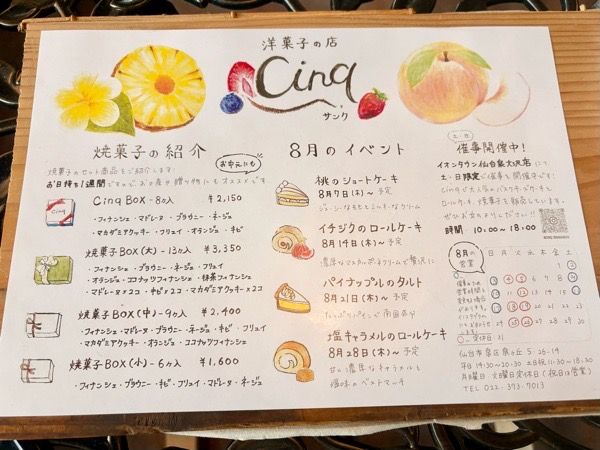 洋菓子の店
Cinq
サンク
焼菓子の紹介
お中元にも
焼菓子のセット商品をご紹介します！
お日持ち1週間ですので、お土産や贈り物にもオススメです
Cinq BOX - 8ヶ入 ¥2,150
・フィナンシェ・マドレーヌ・ブラウニー・ネージュ
・マカダミアクッキー・フリュイ・オランジュ・キビ
焼菓子BOX(大) - 13ヶ入 ¥3,350
・フィナンシェ・ブラウニー・ネージュ・フリュイ
・オランジュ・ココナッツフィナンシェ・抹茶フィナンシェ
・マドレーヌ×2コ・キビ×2コ・マカダミアクッキー×2コ
焼菓子BOX(中) - 9ヶ入 ¥2,400
・フィナンシェ・マドレーヌ・ブラウニー・ネージュ・キビ・フリュイ
・マカダミアクッキー・オランジュ・ココナッツフィナンシェ
焼菓子BOX(小) - 6ヶ入 ¥1,600
・フィナンシェ・ブラウニー・キビ・フリュイ・マドレーヌ・ネージュ
8月のイベント
桃のショートケーキ
8月7日(木)〜予定
ジューシーなももとミルキーなクリーム
イチジクのロールケーキ
8月14日(木)〜予定
濃厚なマスカルポーネクリームで贅沢に
パイナップルのタルト
8月21日(木)〜予定
たっぷりパインで南国気分
塩キャラメルのロールケーキ
8月28日(木)〜予定
甘い濃厚なキャラメルと
塩味のベストマッチ
土・日
催事開催中！
イオンタウン仙台泉大沢店にて
土・日限定で催事を開催中です！
ロールケーキ、焼菓子を販売しています。
ぜひお立ちよりください！！
時間 10:00〜18:00
8月の営業
日 月 火 水 木 金 土
1 2
3 4 5 6 7 8 9
10 11 12 13 14 15 16
17 18 19 20 21 22 23
24 25 26 27 28 29 30
31
仙台市泉区泉ヶ丘 5-26-14
平日 14:30〜20:30 土日祝 11:30〜18:30
月曜日 火曜日定休日(祝日は営業)
TEL 022-373-7013